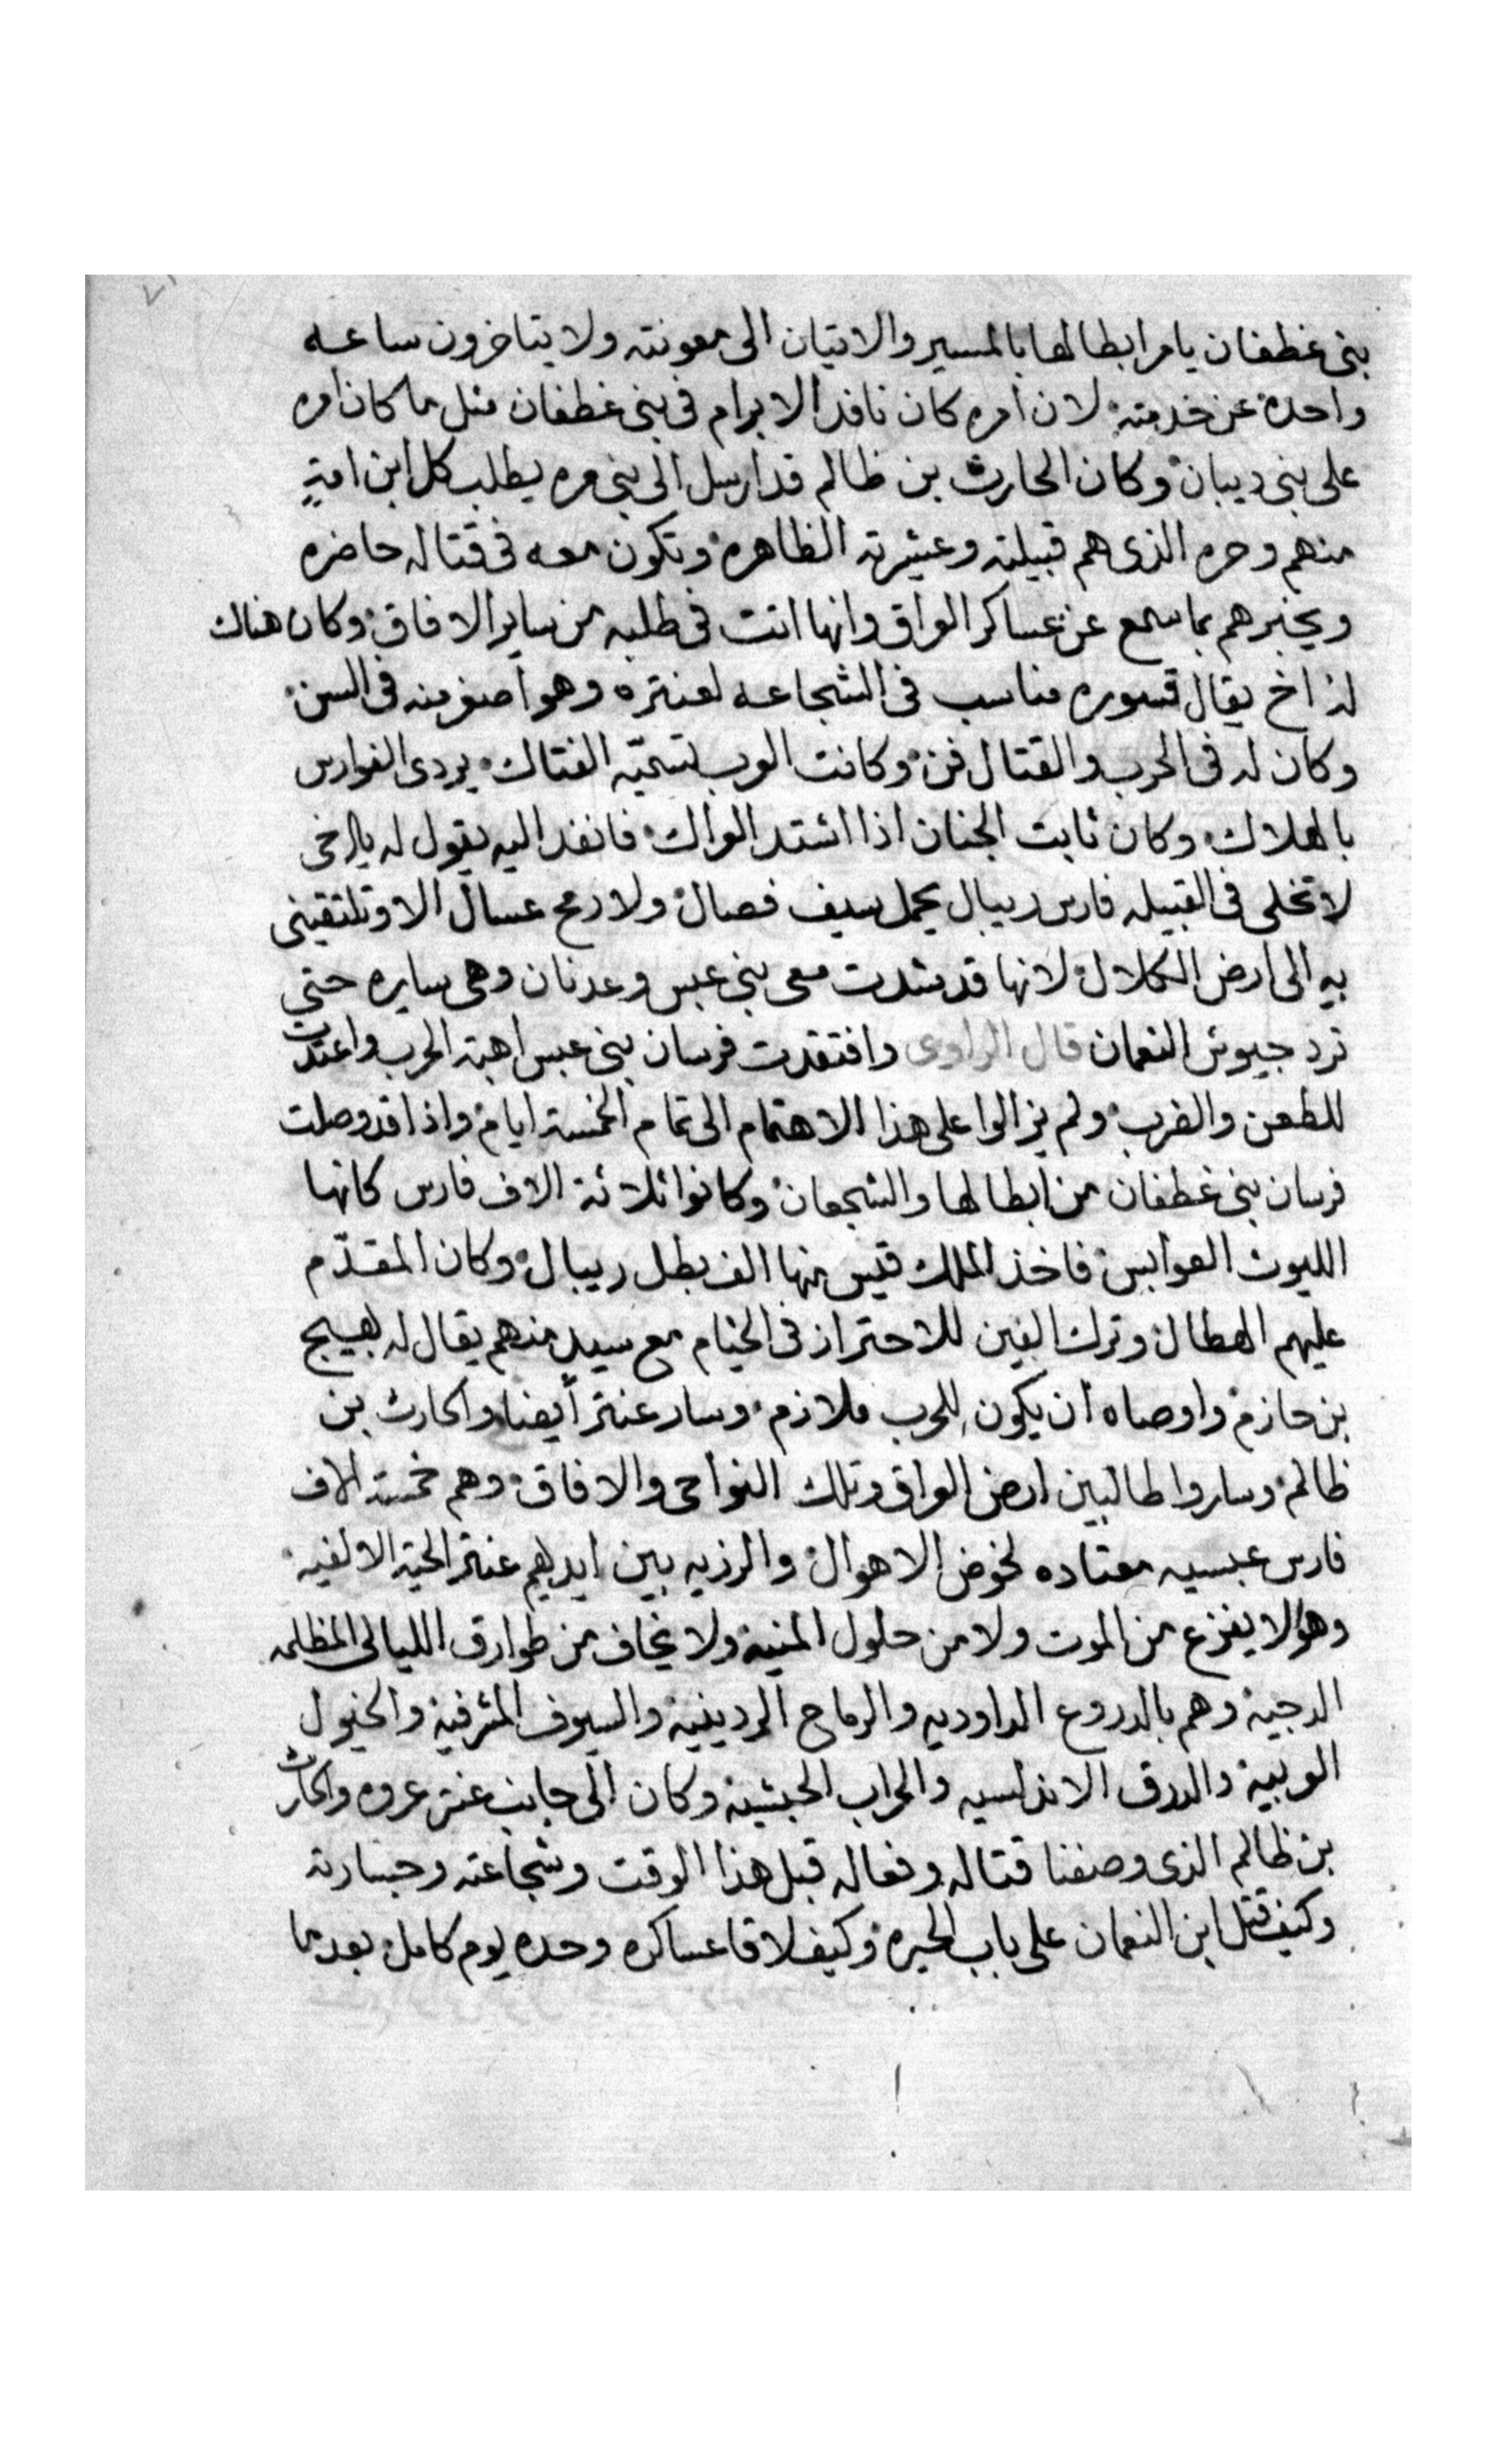 بنى غطفان يامر ابطالها بالمسير والاتيان الى معونته ولا يتاخرون ساعه
واحدة عن خدمته لان امره كان نافد الابرام فى بنى غطفان مثل ما كان امره
على بنى ديبان وكان الحارث بن ظالم قد ارسل الى بنى مره يطلب كل ابن امةٍ
منهم وحره الذى هم قبيلته وعشيرته الظاهره وتكون معه فى قتاله حاضره
ويخبرهم بما سمع عن عساكر العراق وانها اتت فى طلبه من ساير الافاق وكان هناك
لذ اخ يقال قسوره مناسب فى الشجاعه لعنتره وهو اصغر منه فى السن
وكان له فى الحرب والقتال فن وكانت العرب تسميّه الفتاك يردى الفوارس
بالهلاك وكان ثابت الجنان اذا اشتد العراك فانفد اليه يقول له يا اخى
لا تخلى فى القبيله فارس ريبال يحمل سيف فصال ولا رمح عسال الا وتلتقينى
بهِ الى ارض الكلال لانها قد شدت معى بنى عبس وعدنان وهى سايره حتى
ترد جيوش النعمان قال الراوى وافتقدت فرسان بنى عبس اهبة الحرب واعتدت
للطعن والضرب ولم يزالوا على هذا الاهتمام الى تمام الخمسة ايام واذا قد وصلت
فرسان بنى غطفان من ابطالها والشجعان وكانوا ثلاثة الاف فارس كانها
الليوث العوابس فاخذ الملك قيس منها الف بطل ريبال وكان المقدّم
عليهم الهطال وترك الفين للاحتراز فى الخيام مع سيدٍ منهم يقال له بهيج
بن حازم واوصاه ان يكون للحرب ملازم وسار عنتر أيضا والحارث بن
ظالم وساروا طالبين ارض العراق وتلك النواحى والافاق وهم خمسة الاف
فارس عبسيه معتاده لخوض الاهوال والرزيه بين ايديهم عنتر الحية الالفيه
وهو لا يفزع من الموت ولا من حلول المنية ولا يخاف من طوارق الليالى المظلمه
الدجية وهم بالدروع الداوديه والرماح الردينية والسيوف المشرفية والخيول
العربية والدرق الاندلسيه والحراب الحبشية وكان الى جانب عنتر عروه والحارث
بن ظالم الذى وصفنا قتاله وفعاله قبل هذا الوقت وشجاعته وجسارته
وكيف قتل ابن النعمان على باب الحيره وكيف لاقا عساكره وحده يوم كامل بعد ما